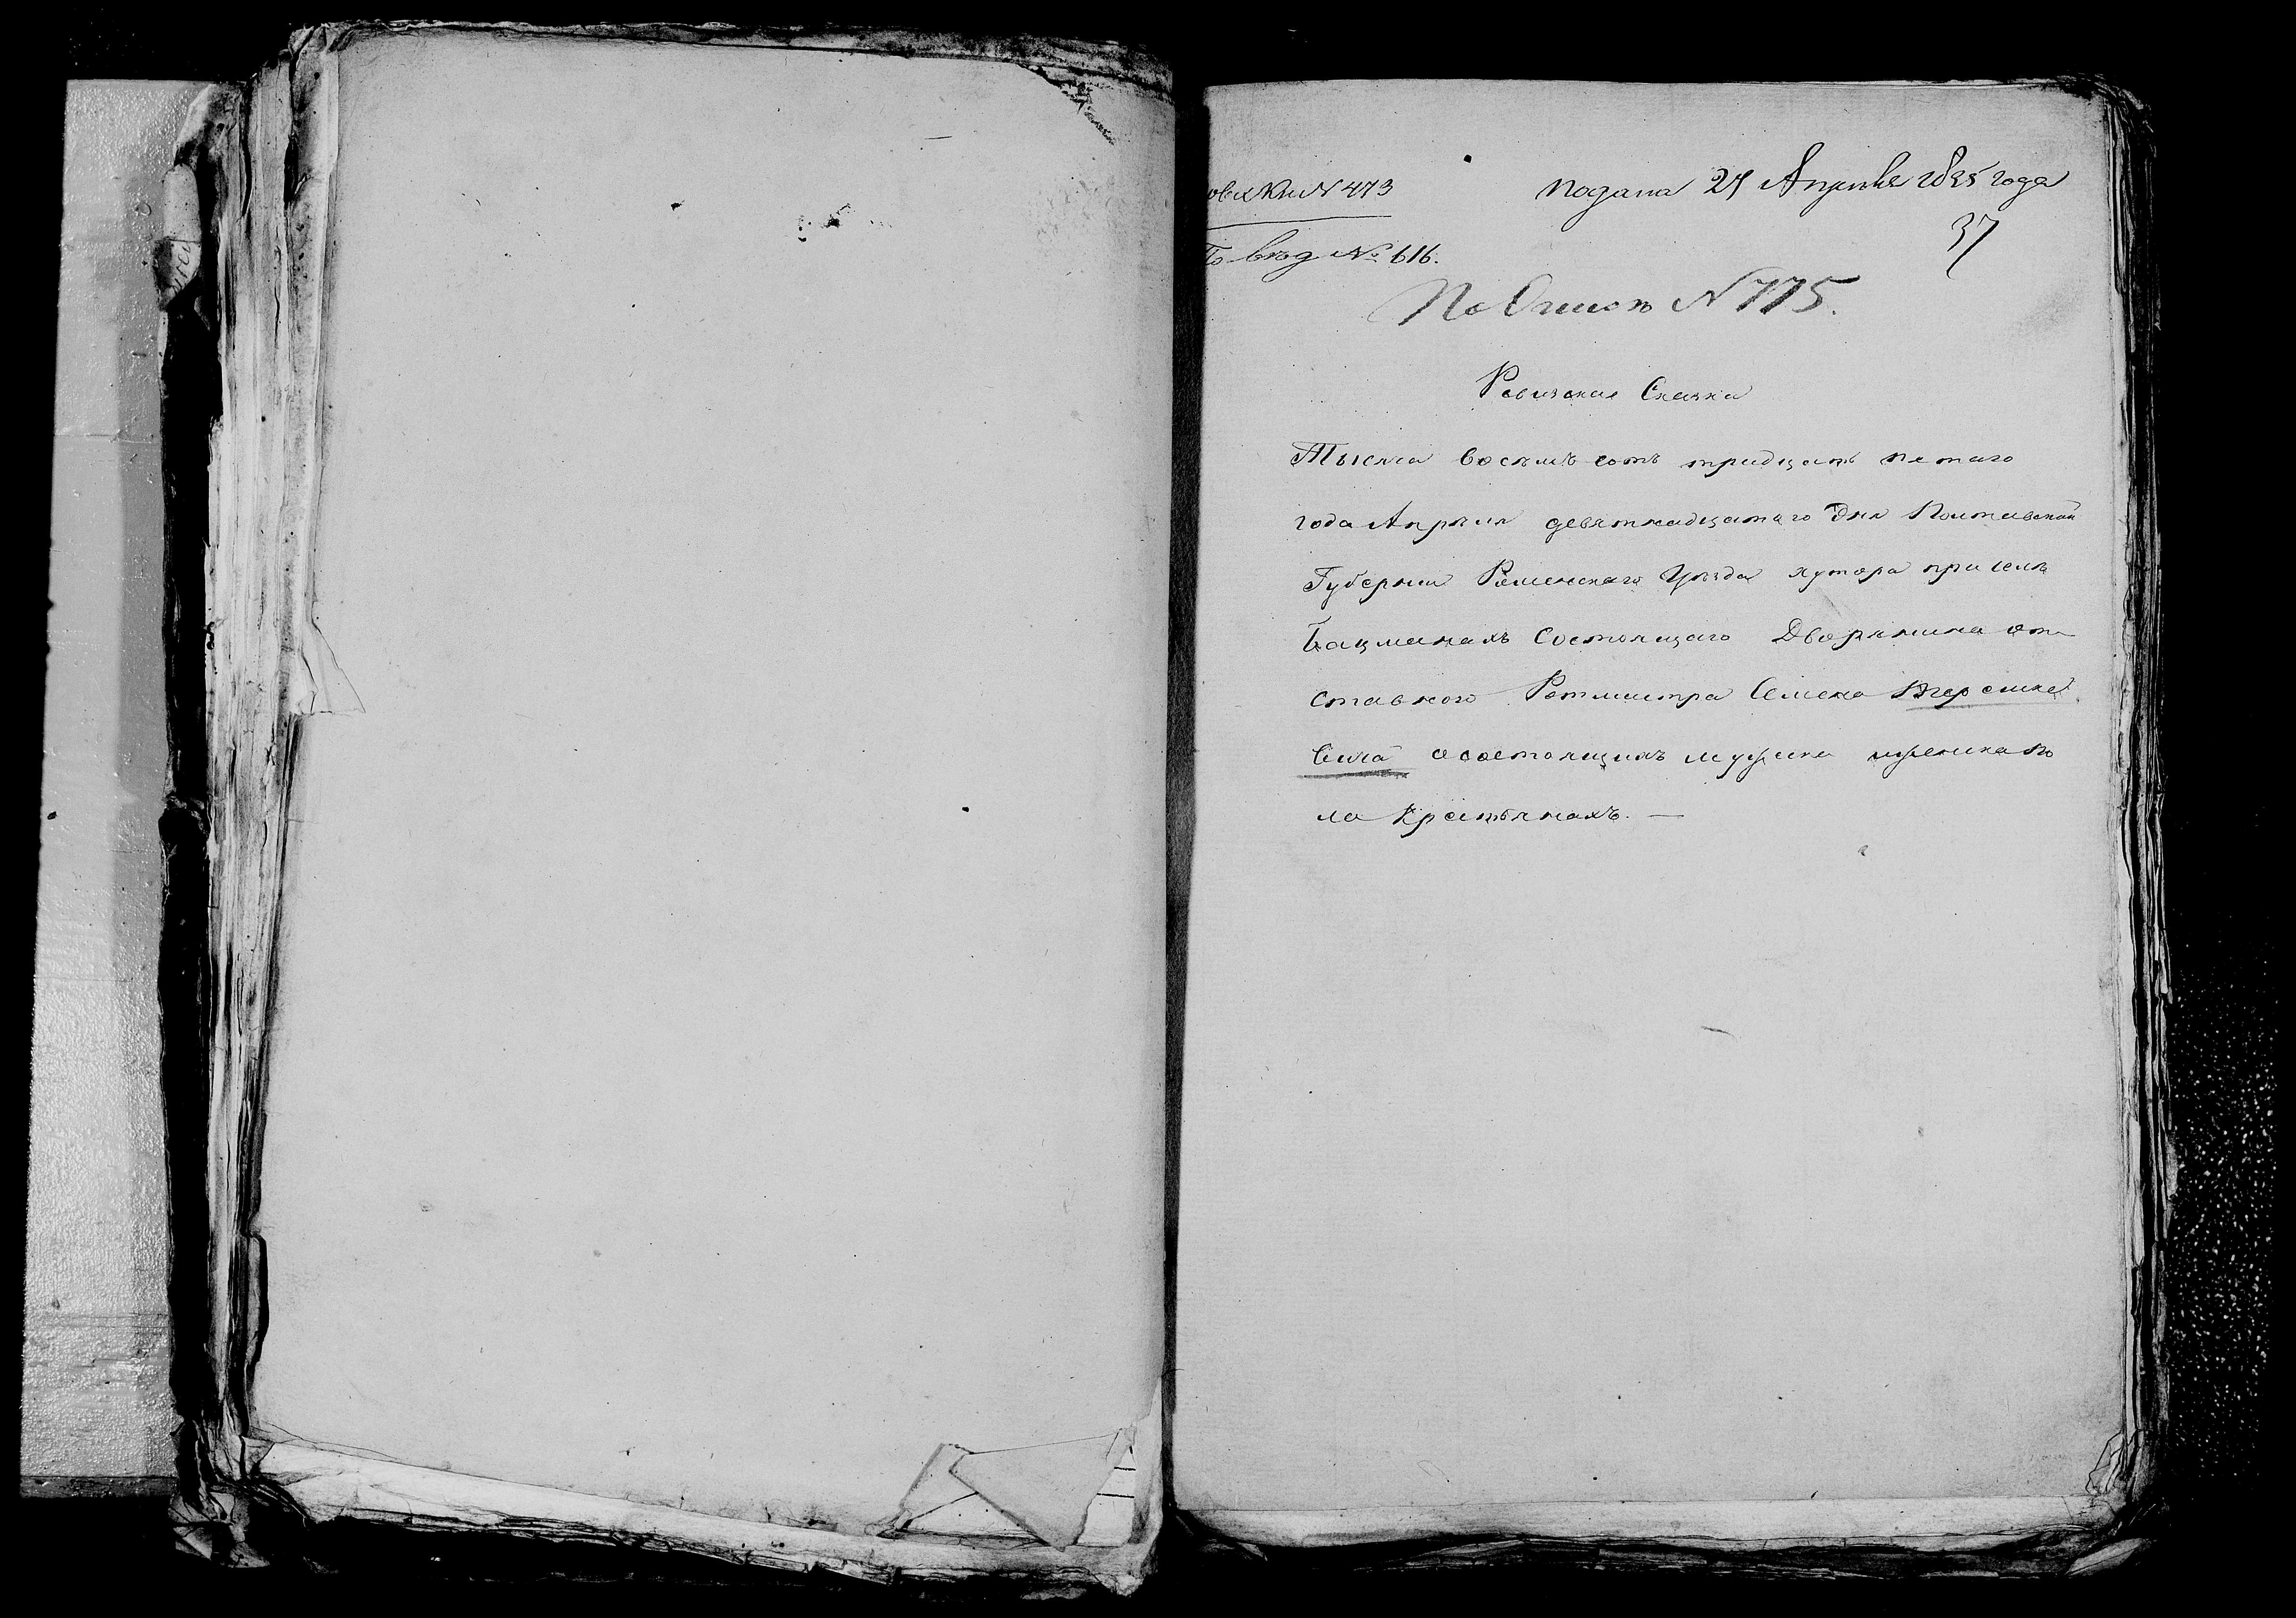 Кн N 473
подана 27 Апреля 1835 года
По вед № 616.
37
По Описи N 775.
Ревизская Сказка
Тысяча восемъ сотъ тридцать пятаго
года Апреля девятнадцатаго Дня Полтавской
Губернии Роменскаго Уезда хутора при селе
Бацманахъ Состоящаго Дворянина от
ставного Ротмистра Семена
о состоящихъ мужеска и женска по
ла Крестьянахъ. —